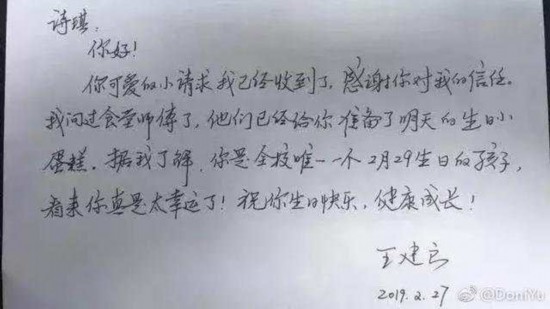 诗琪，
你好！
你可爱的小请求我已经收到了，感谢你对我的信任。
我问过食堂师傅了，他们已经给你准备了明天的生日小
蛋糕。据我了解，你是全校唯一一个2月29生日的孩子，
看来你真是太幸运了！祝你生日快乐，健康成长！
王建良
2019.2.27
@DoniYu